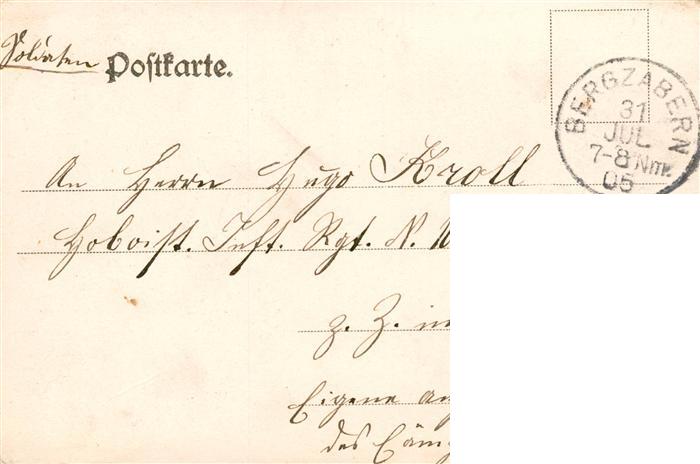 Soldaten Postkarte.
BERGZABERN
31
JUL
7-8 Nm.
05
An Herrn Hugo Kroll
Hoboist. Inft. Rgt. N.
z. Z. in
Eigene
des